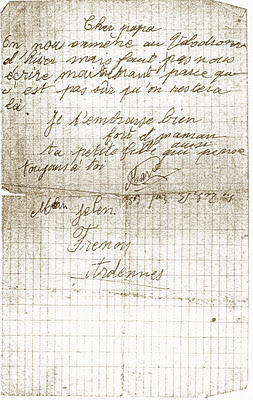 Cher papa
On nous emmène au Velodrome
d'hiver mais faut pas nous
écrire maintenant parce que
c'est pas sûr qu'on restera
là.
Je t'embrasse bien
fort et maman
aussi
ta petite fille qui pense
toujours à toi
Mr Jelen
Frenoy
Ardennes